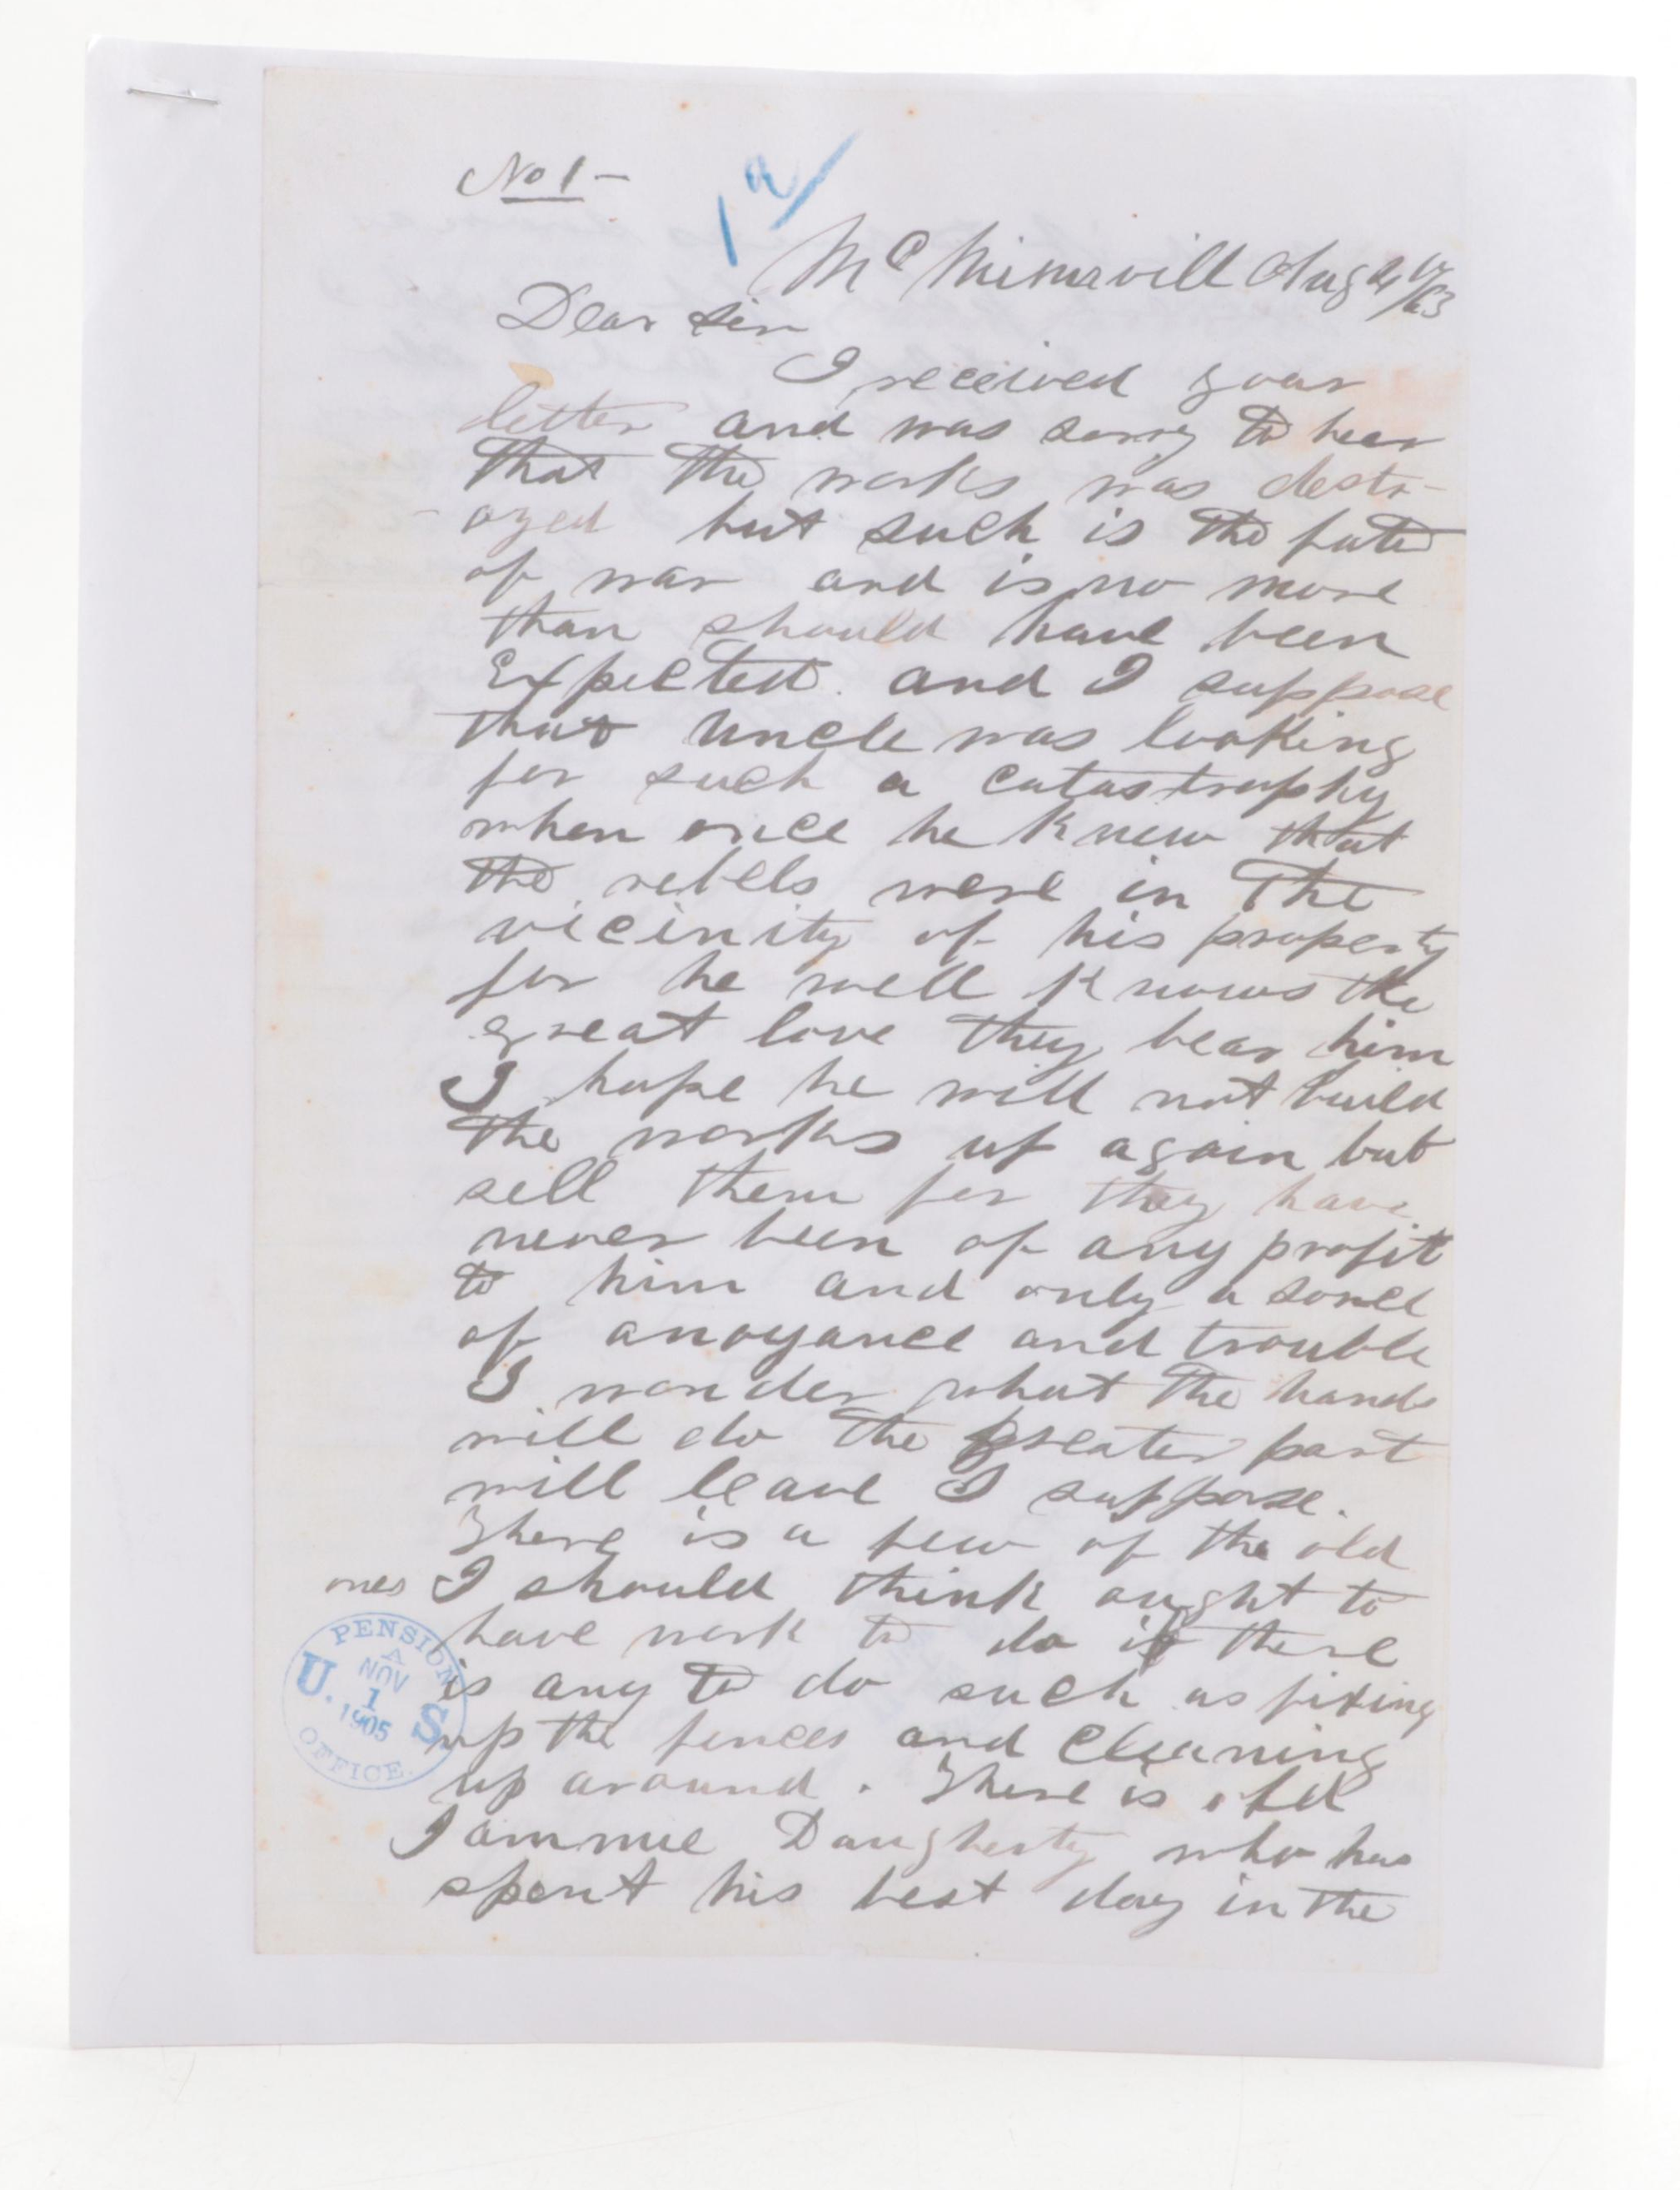 No 1 -
1 a/
McMinnvill Aug 4th/63
Dear Sir
I received your
letter and was sorry to hear
that the works was destr-
oyed but such is the fate
of war and is no more
than should have been
Expected. and I suppose
that Uncle was looking
for such a catastrophy
when once he knew that
the rebels were in the
vicinity of his property
for he well knows the
great love they bear him
I hope he will not build
the works up again but
sell them for they have
never been of any profit
to him and only a sorce
of anoyance and trouble
I wonder what the hands
will do the greater part
will leave I suppose.
There is a few of the old
ones I should think ought to
have work to do if there
is any to do such as fixing
up the fences and cleaning
up around. There is old
Jammie Daugherty who has
spent his best day in the
U. S. PENSION OFFICE.
A
NOV
1
1905